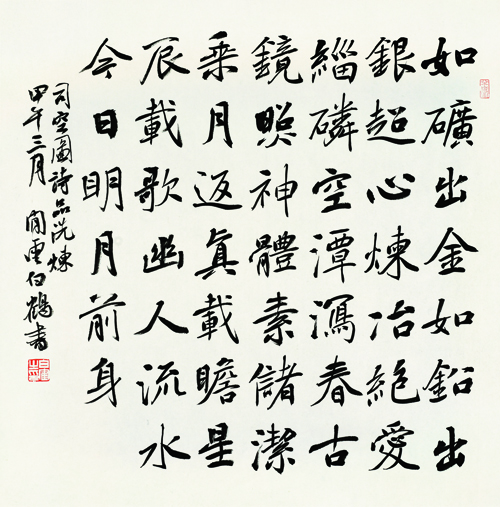 如礦出金如鉛出
銀超心煉冶絕愛
緇磷空潭瀉春古
鏡照神體素儲潔
乘月返真載瞻星
辰載歌幽人流水
今日明月前身
司空圖詩品洗煉
甲午三月 閒雲白鶴書